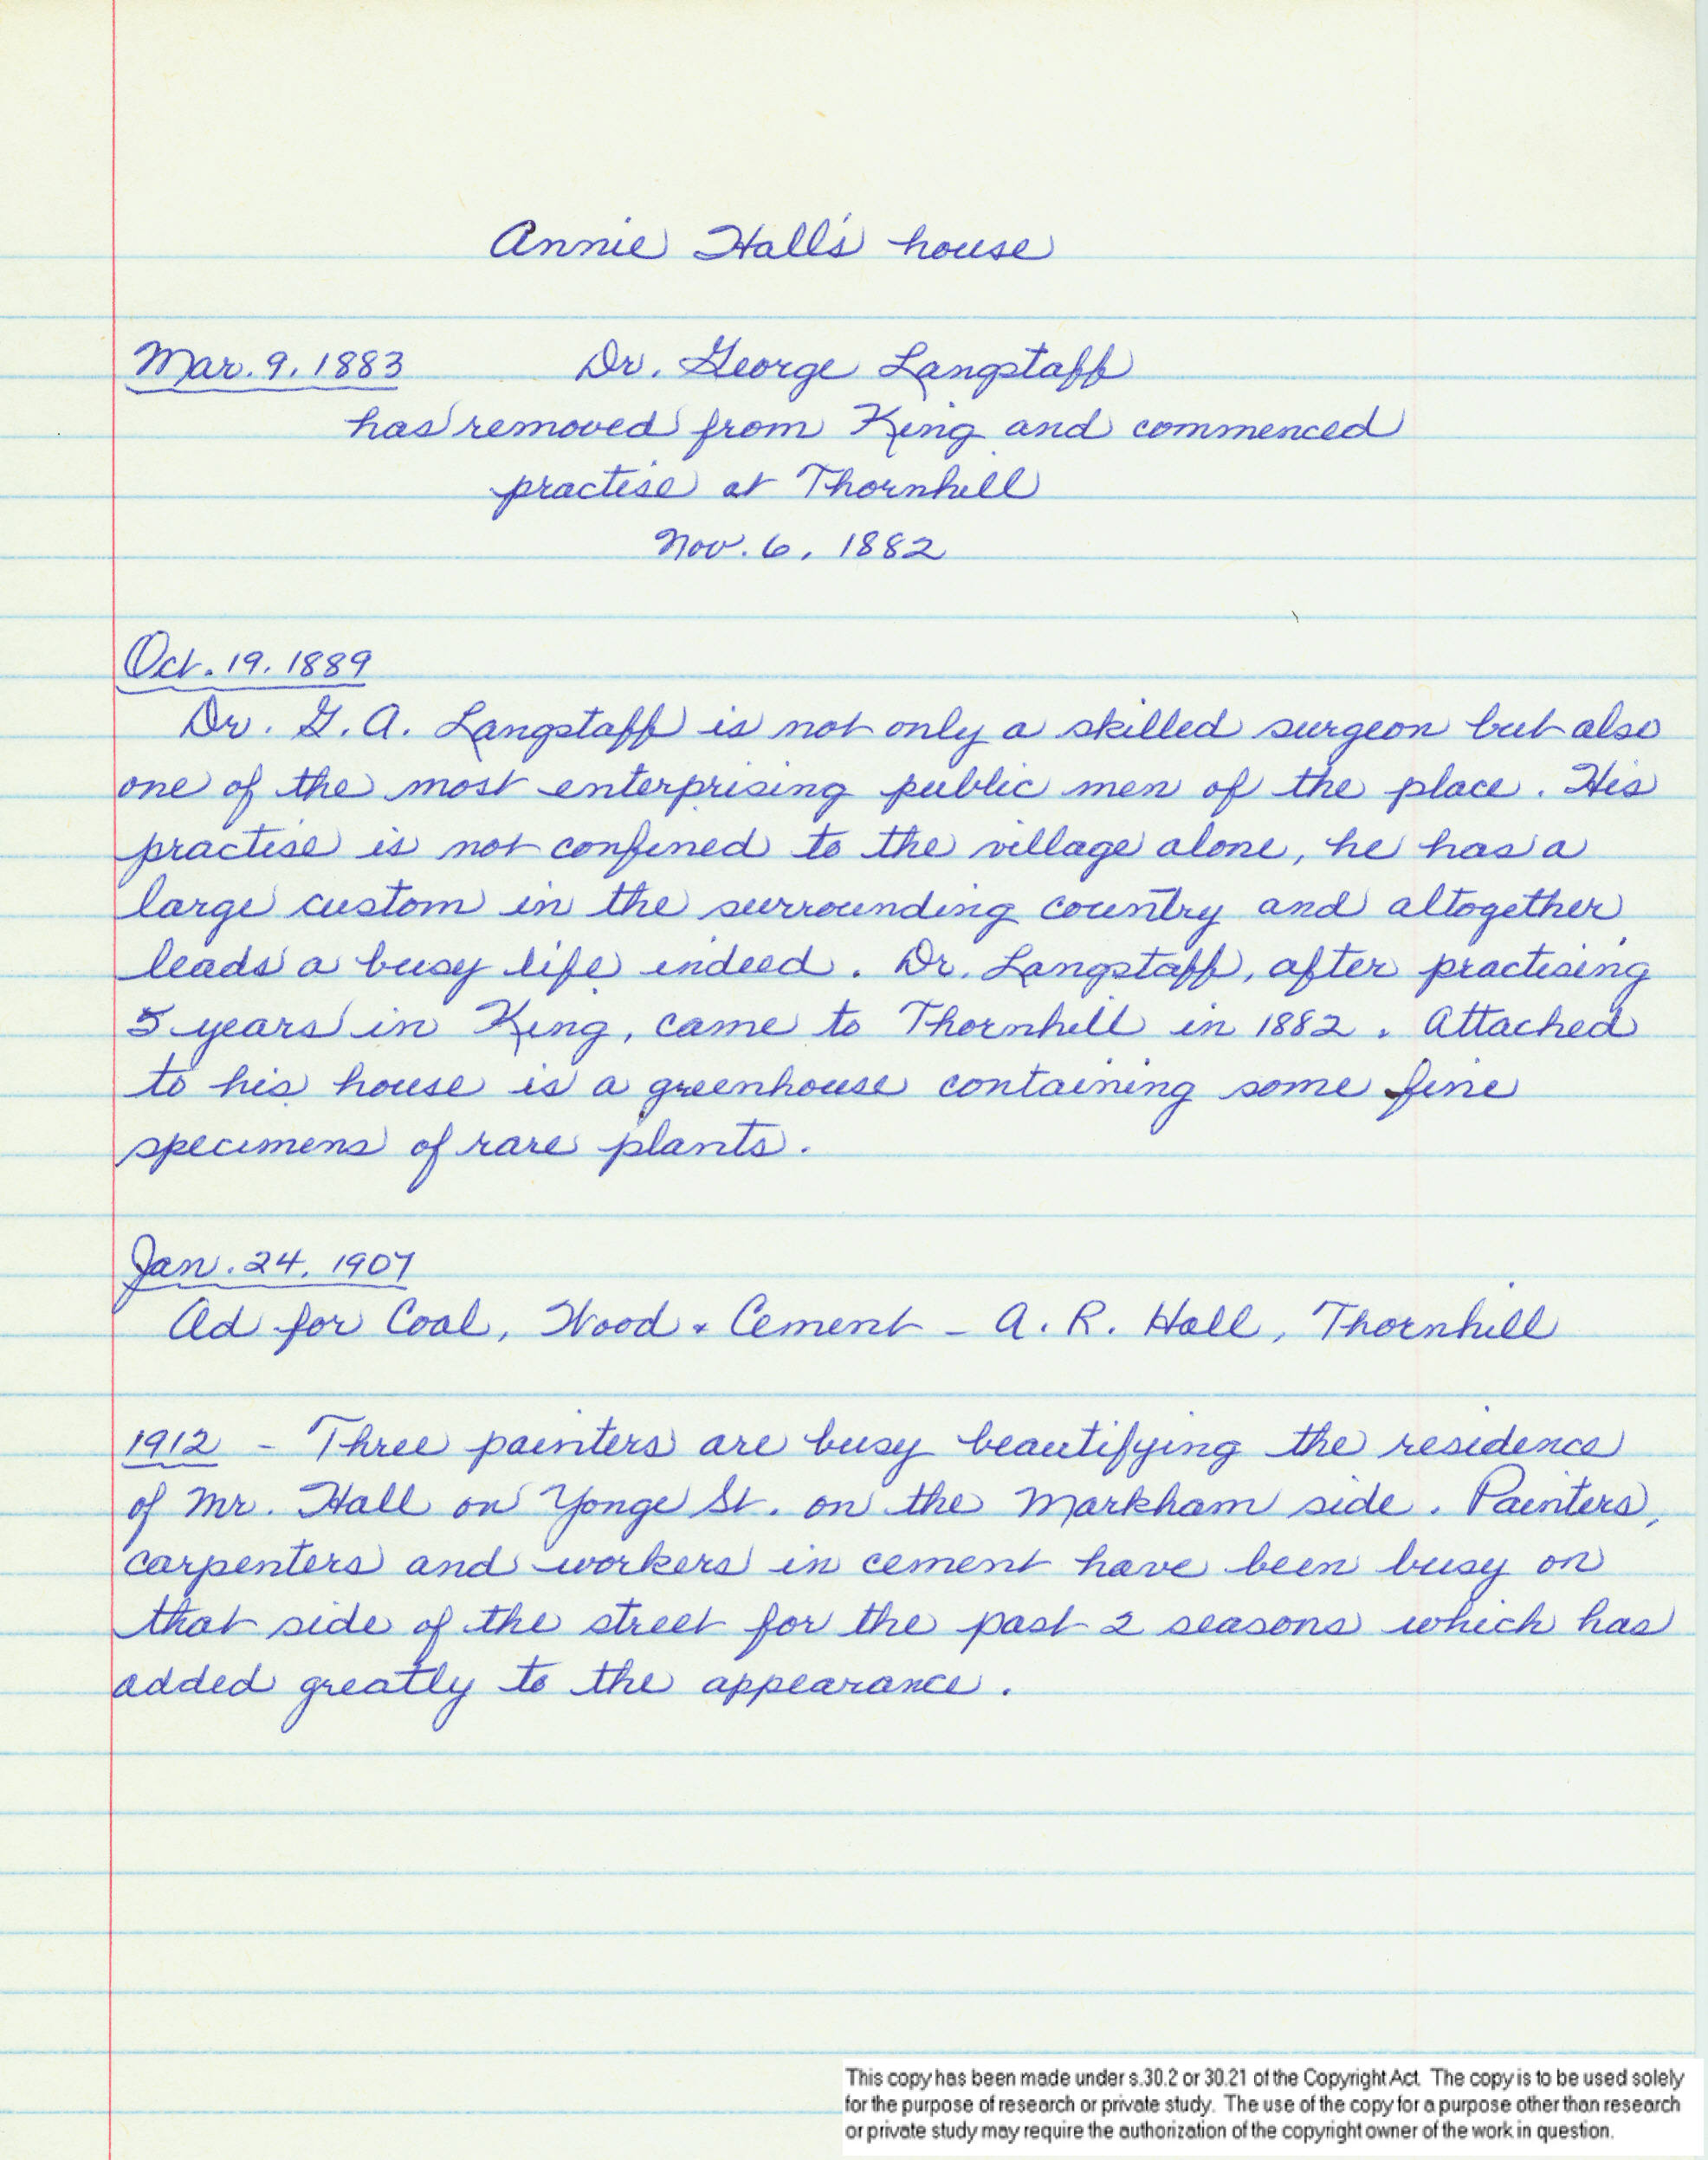 Annie Hall's house
Mar. 9. 1883 Dr. George Langstaff
has removed from King and commenced
practise at Thornhill
Nov. 6, 1882
Oct. 19. 1889
Dr. G. A. Langstaff is not only a skilled surgeon but also
one of the most enterprising public men of the place. His
practise is not confined to the village alone, he has a
large custom in the surrounding country and altogether
leads a busy life indeed. Dr. Langstaff, after practising
5 years in King, came to Thornhill in 1882. Attached
to his house is a greenhouse containing some fine
specimens of rare plants.
Jan. 24. 1907
Ad for Coal, Wood & Cement - A. R. Hall, Thornhill
1912 - Three painters are busy beautifying the residence
of Mr. Hall on Yonge St. on the Markham side. Painters,
carpenters and workers in cement have been busy on
that side of the street for the past 2 seasons which has
added greatly to the appearance.
This copy has been made under s.30.2 or 30.21 of the Copyright Act. The copy is to be used solely
for the purpose of research or private study. The use of the copy for a purpose other than research
or private study may require the authorization of the copyright owner of the work in question.